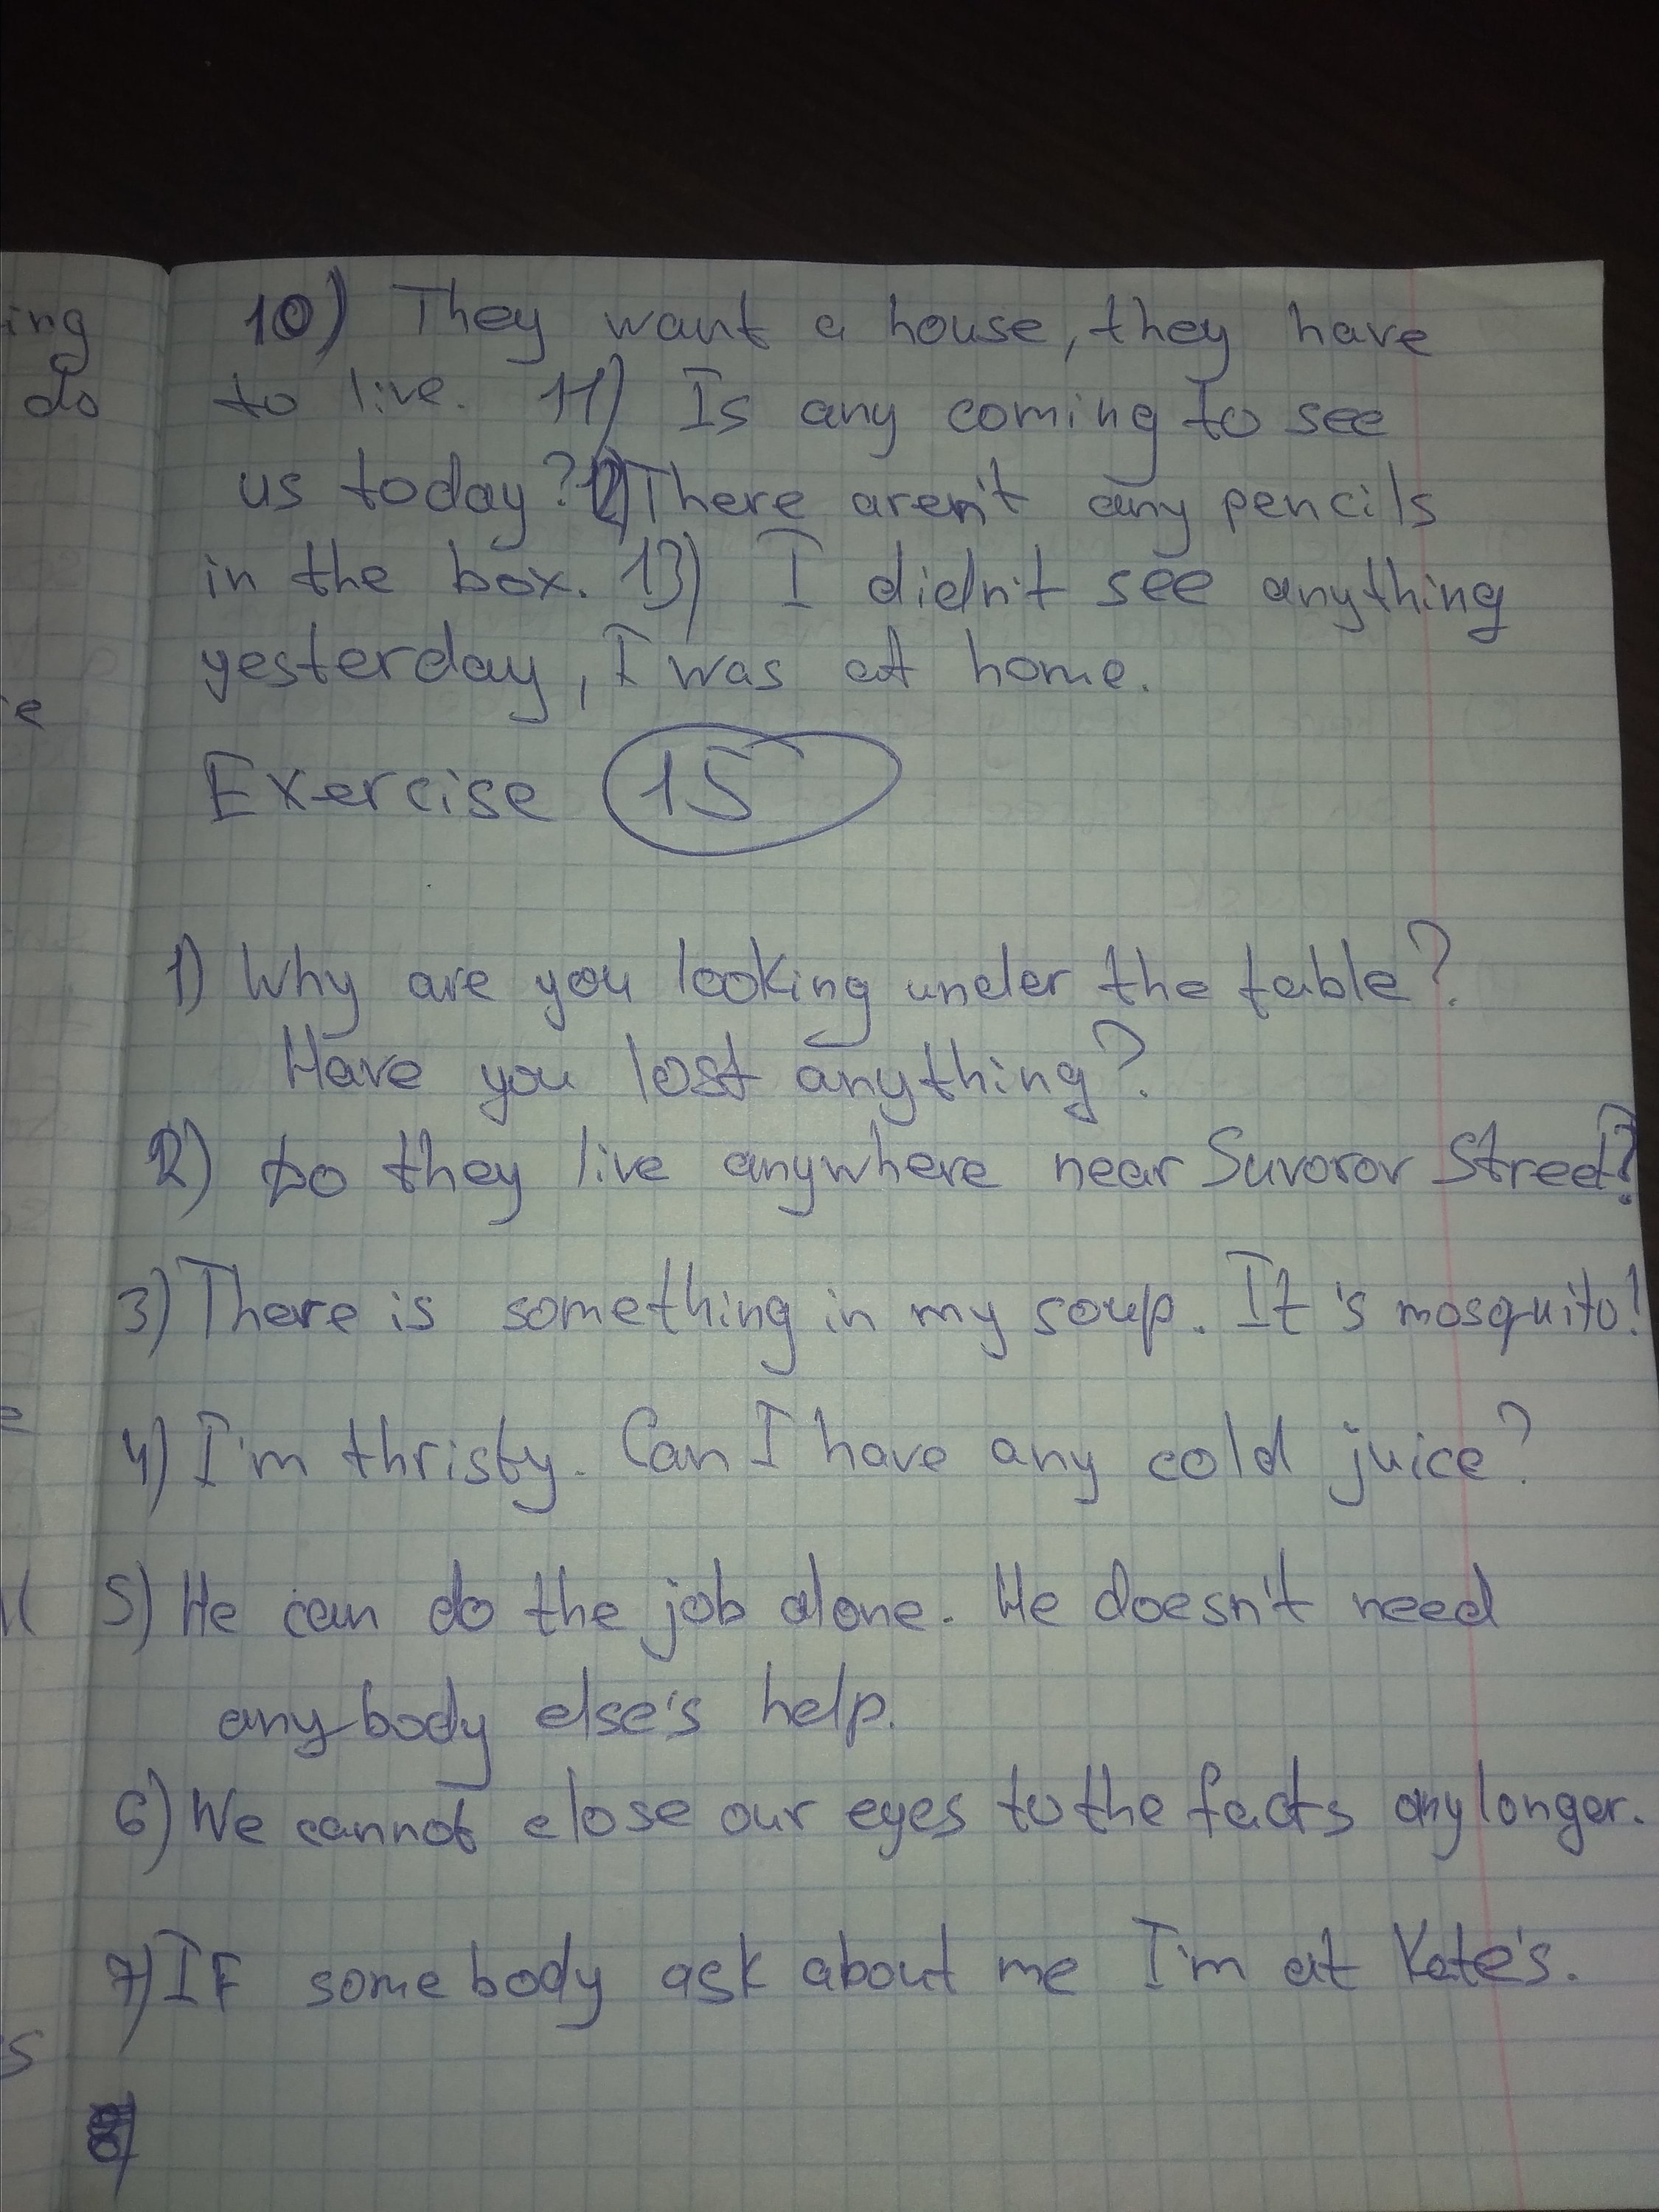 10) They want a house, they have
to live. 11) Is any coming to see
us today? 12) There aren't any pencils
in the box. 13) I didn't see anything
yesterday, I was at home.
Exercise 15
1) Why are you looking under the table?
Have you lost anything?
2) Do they live anywhere near Suvorov Street?
3) There is something in my soup. It's mosquito!
4) I'm thristy. Can I have any cold juice?
5) He can do the job alone. He doesn't need
anybody else's help.
6) We cannot close our eyes to the facts any longer.
7) IF somebody ask about me I'm at Kate's.
8)
ing
do
e
s